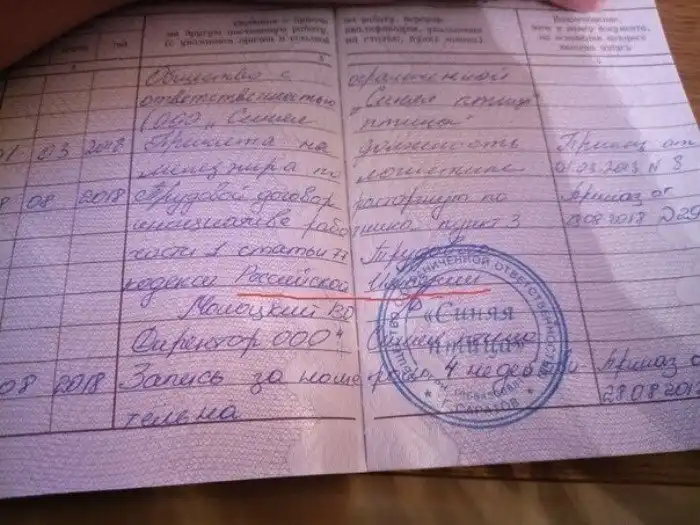 сведения о приеме на работу, переводе Наименование,
на другую постоянную работу, квалификации, увольнении дата и номер документа,
(с указанием причин и ссылкой на статью, пункт закона) на основании которого
год внесена запись
3 4
Общество с ограниченной
ответственностью „Синяя птица"
(ООО „Синяя птица"
01 03 2018 Принята на должность Приказ от
менеджера по логистике 01.03.2018 N 3
08 2018 Трудовой договор расторгнут по Приказ от
инициативе работника, пункт 3 08 2018
части 1 статьи 77 Трудового
кодекса Российской Империи
Молоцкий ВО
Директор ООО „Синяя птица
08 2018 Запись за номером 4 недействи Приказ о
тельна 28.08.201
ОБЩЕСТВО С ОГРАНИЧЕННОЙ ОТВЕТСТВЕННОСТЬЮ
«Синяя
птица»
Г. САРАТОВ